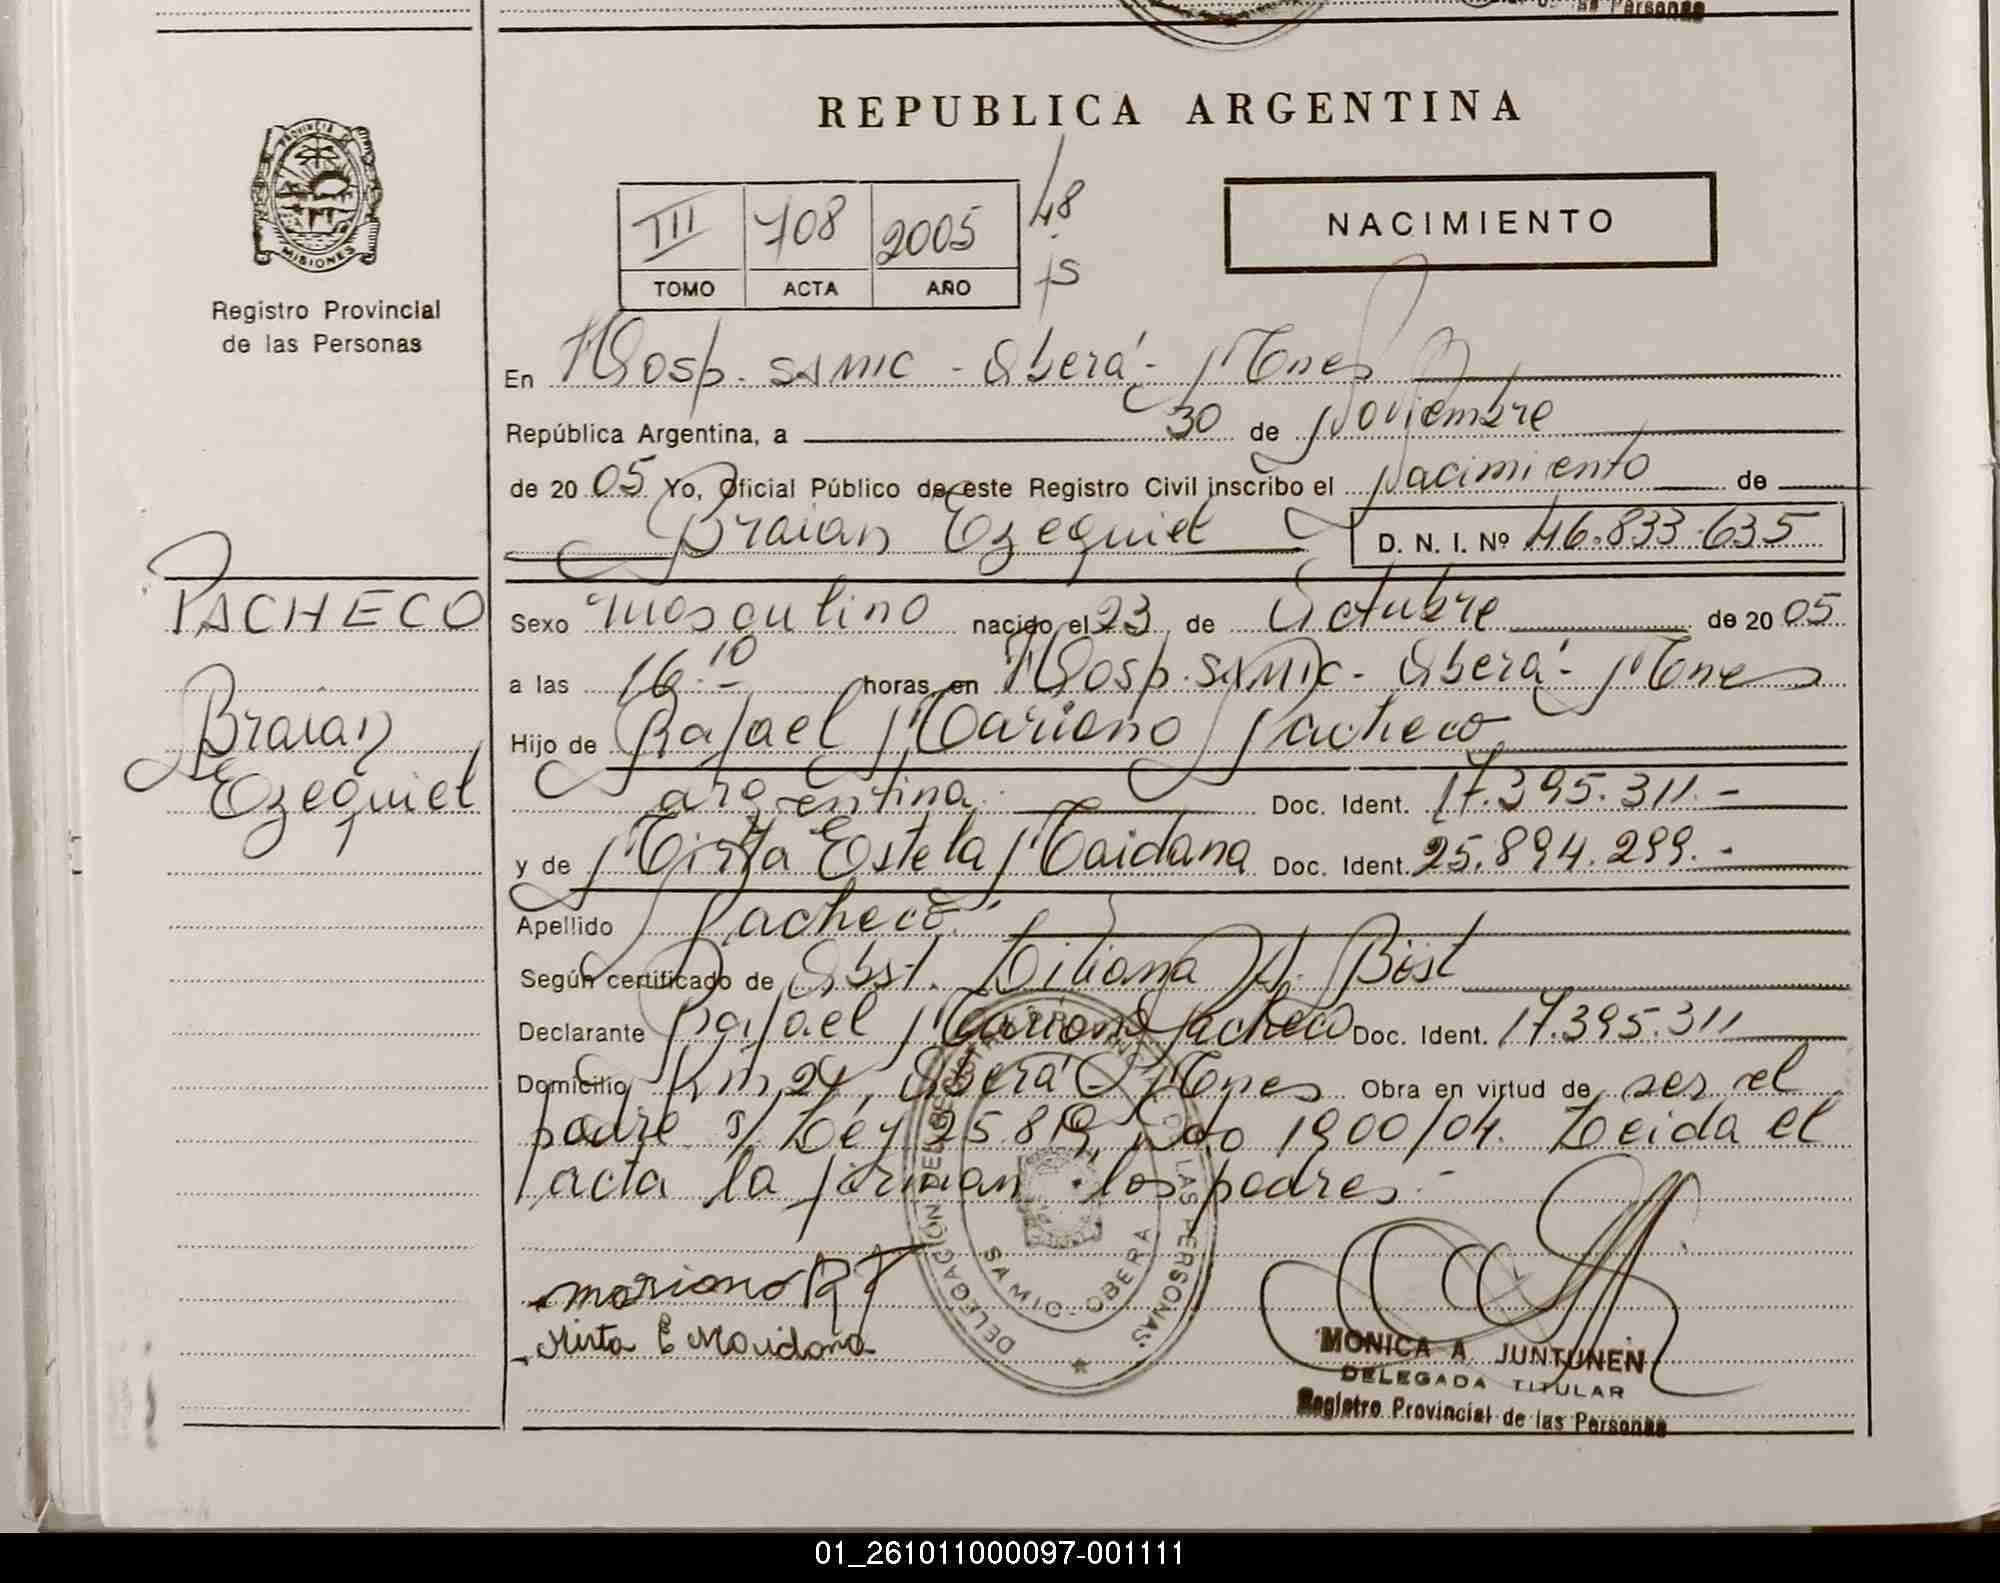 de las Personas
REPUBLICA ARGENTINA
PROVINCIA DE
MISIONES
Registro Provincial
de las Personas
III 708 2005 48
TOMO ACTA AÑO
NACIMIENTO
En Hosp. SAMIC - Oberá - Mnes
República Argentina, a 30 de Noviembre
de 20 05 Yo, Oficial Público de este Registro Civil inscribo el Nacimiento de
Braian Ezequiel D. N. I. Nº 46.833.635
PACHECO
Braian
Ezequiel
Sexo masculino nacido el 23 de Octubre de 20 05
a las 16.10 horas en Hosp. SAMIC - Oberá - Mnes
Hijo de Rafael Mariano Pacheco
argentina. Doc. Ident. 17.395.311.-
y de Mirta Estela Maidana Doc. Ident. 25.894.299.-
Apellido Pacheco.
Según certificado de Obst. Liliana A. Bóst
Declarante Rafael Mariano Pacheco Doc. Ident. 17.395.311
Domicilio Km 24, Oberá - Mnes Obra en virtud de ser el
padre s/ Ley 25.819, Dto 1900/04. Leida el
acta la firman los padres.-
mariano R P
Mirta E Maidana
DELEGACIÓN DEL REGISTRO PROVINCIAL DE LAS PERSONAS
SAMIC - OBERA
MONICA A. JUNTUNEN
DELEGADA TITULAR
Registro Provincial de las Personas
01_261011000097-001111